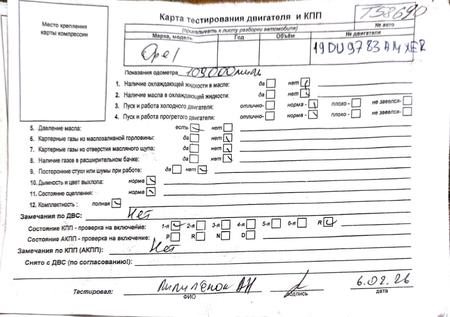 Место крепления
карты компрессии
Карта тестирования двигателя и КПП
(прикалывать к листу разборки автомобиля)
№ авто
Марка, модель
Год
Объём
№ двигателя
Opel
19 DU 97 83 AM XER
Показания одометра 109000 мили
1. Наличие охлаждающей жидкости в масле: да нет
2. Наличие масла в охлаждающей жидкости: да нет
3. Пуск и работа холодного двигателя: отлично- норма - плохо - не завелся-
4. Пуск и работа прогретого двигателя: отлично- норма - плохо - не завелся-
5. Давление масла: есть нет
6. Картерные газы из маслозаливной горловины: да нет
7. Картерные газы из отверстия масляного щупа: да нет
8. Наличие газов в расширительном бачке: да нет
9. Посторонние стуки или шумы при работе: да нет
10. Дымность и цвет выхлопа: норма
11. Состояние сцепления: норма
12. Комплектность: полная
Замечания по ДВС: Нет
Состояние КПП - проверка на включение: 1-я 2-я 3-я 4-я 5-я 6-я R
Состояние АКПП - проверка на включение: P R N D
Замечания по КПП (АКПП): Нет
Снято с ДВС (по согласованию!):
Тестировал:
ФИО
подпись
дата